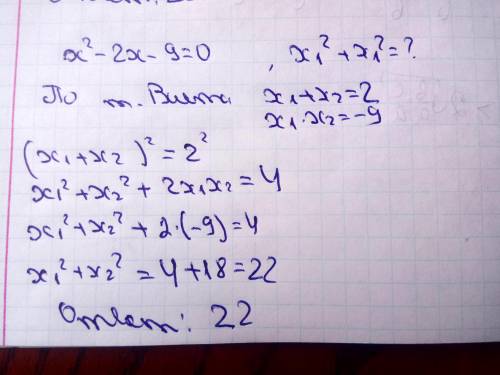 x² - 2x - 9 = 0 , x₁² + x₁² = ?
По т. Виета x₁ + x₂ = 2
x₁ · x₂ = -9
(x₁ + x₂)² = 2²
x₁² + x₂² + 2x₁x₂ = 4
x₁² + x₂² + 2·(-9) = 4
x₁² + x₂² = 4 + 18 = 22
Ответ: 22